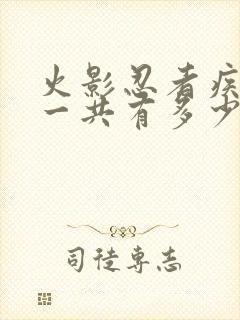 火影忍者疾
一共有多少
司徒专志